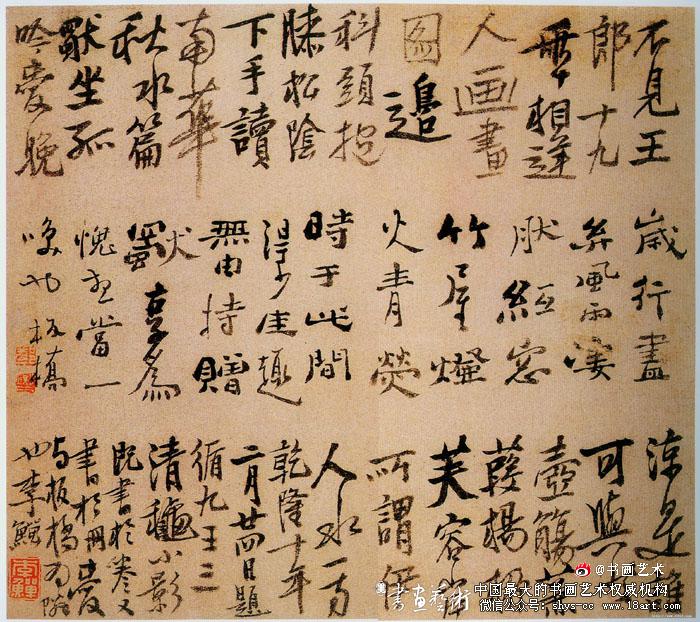 不見王
郎十九
年相逢
人画畫
图邊
科頭抱
膝松陰
下手讀
南華
秋水篇
坐孤
吟晚
歲行盡
矣風雨凄
肰紙窓
竹屋燈
火青熒
時于此間
得少佳趣
無由持贈
獨享爲
愧想當一
咲也板橋
涼是誰
可與
壺觴
葭楊柳
芙容
所謂伊
人水一方
乾隆十年
二月廿四日題
循九王三
清穐小影
既書於卷又
書於冊
与板橋为隣
也李鱓
@书画艺术
書画藝術
中国最大的书画艺术权威机构
微信公众号：shys-cc www.18art.com